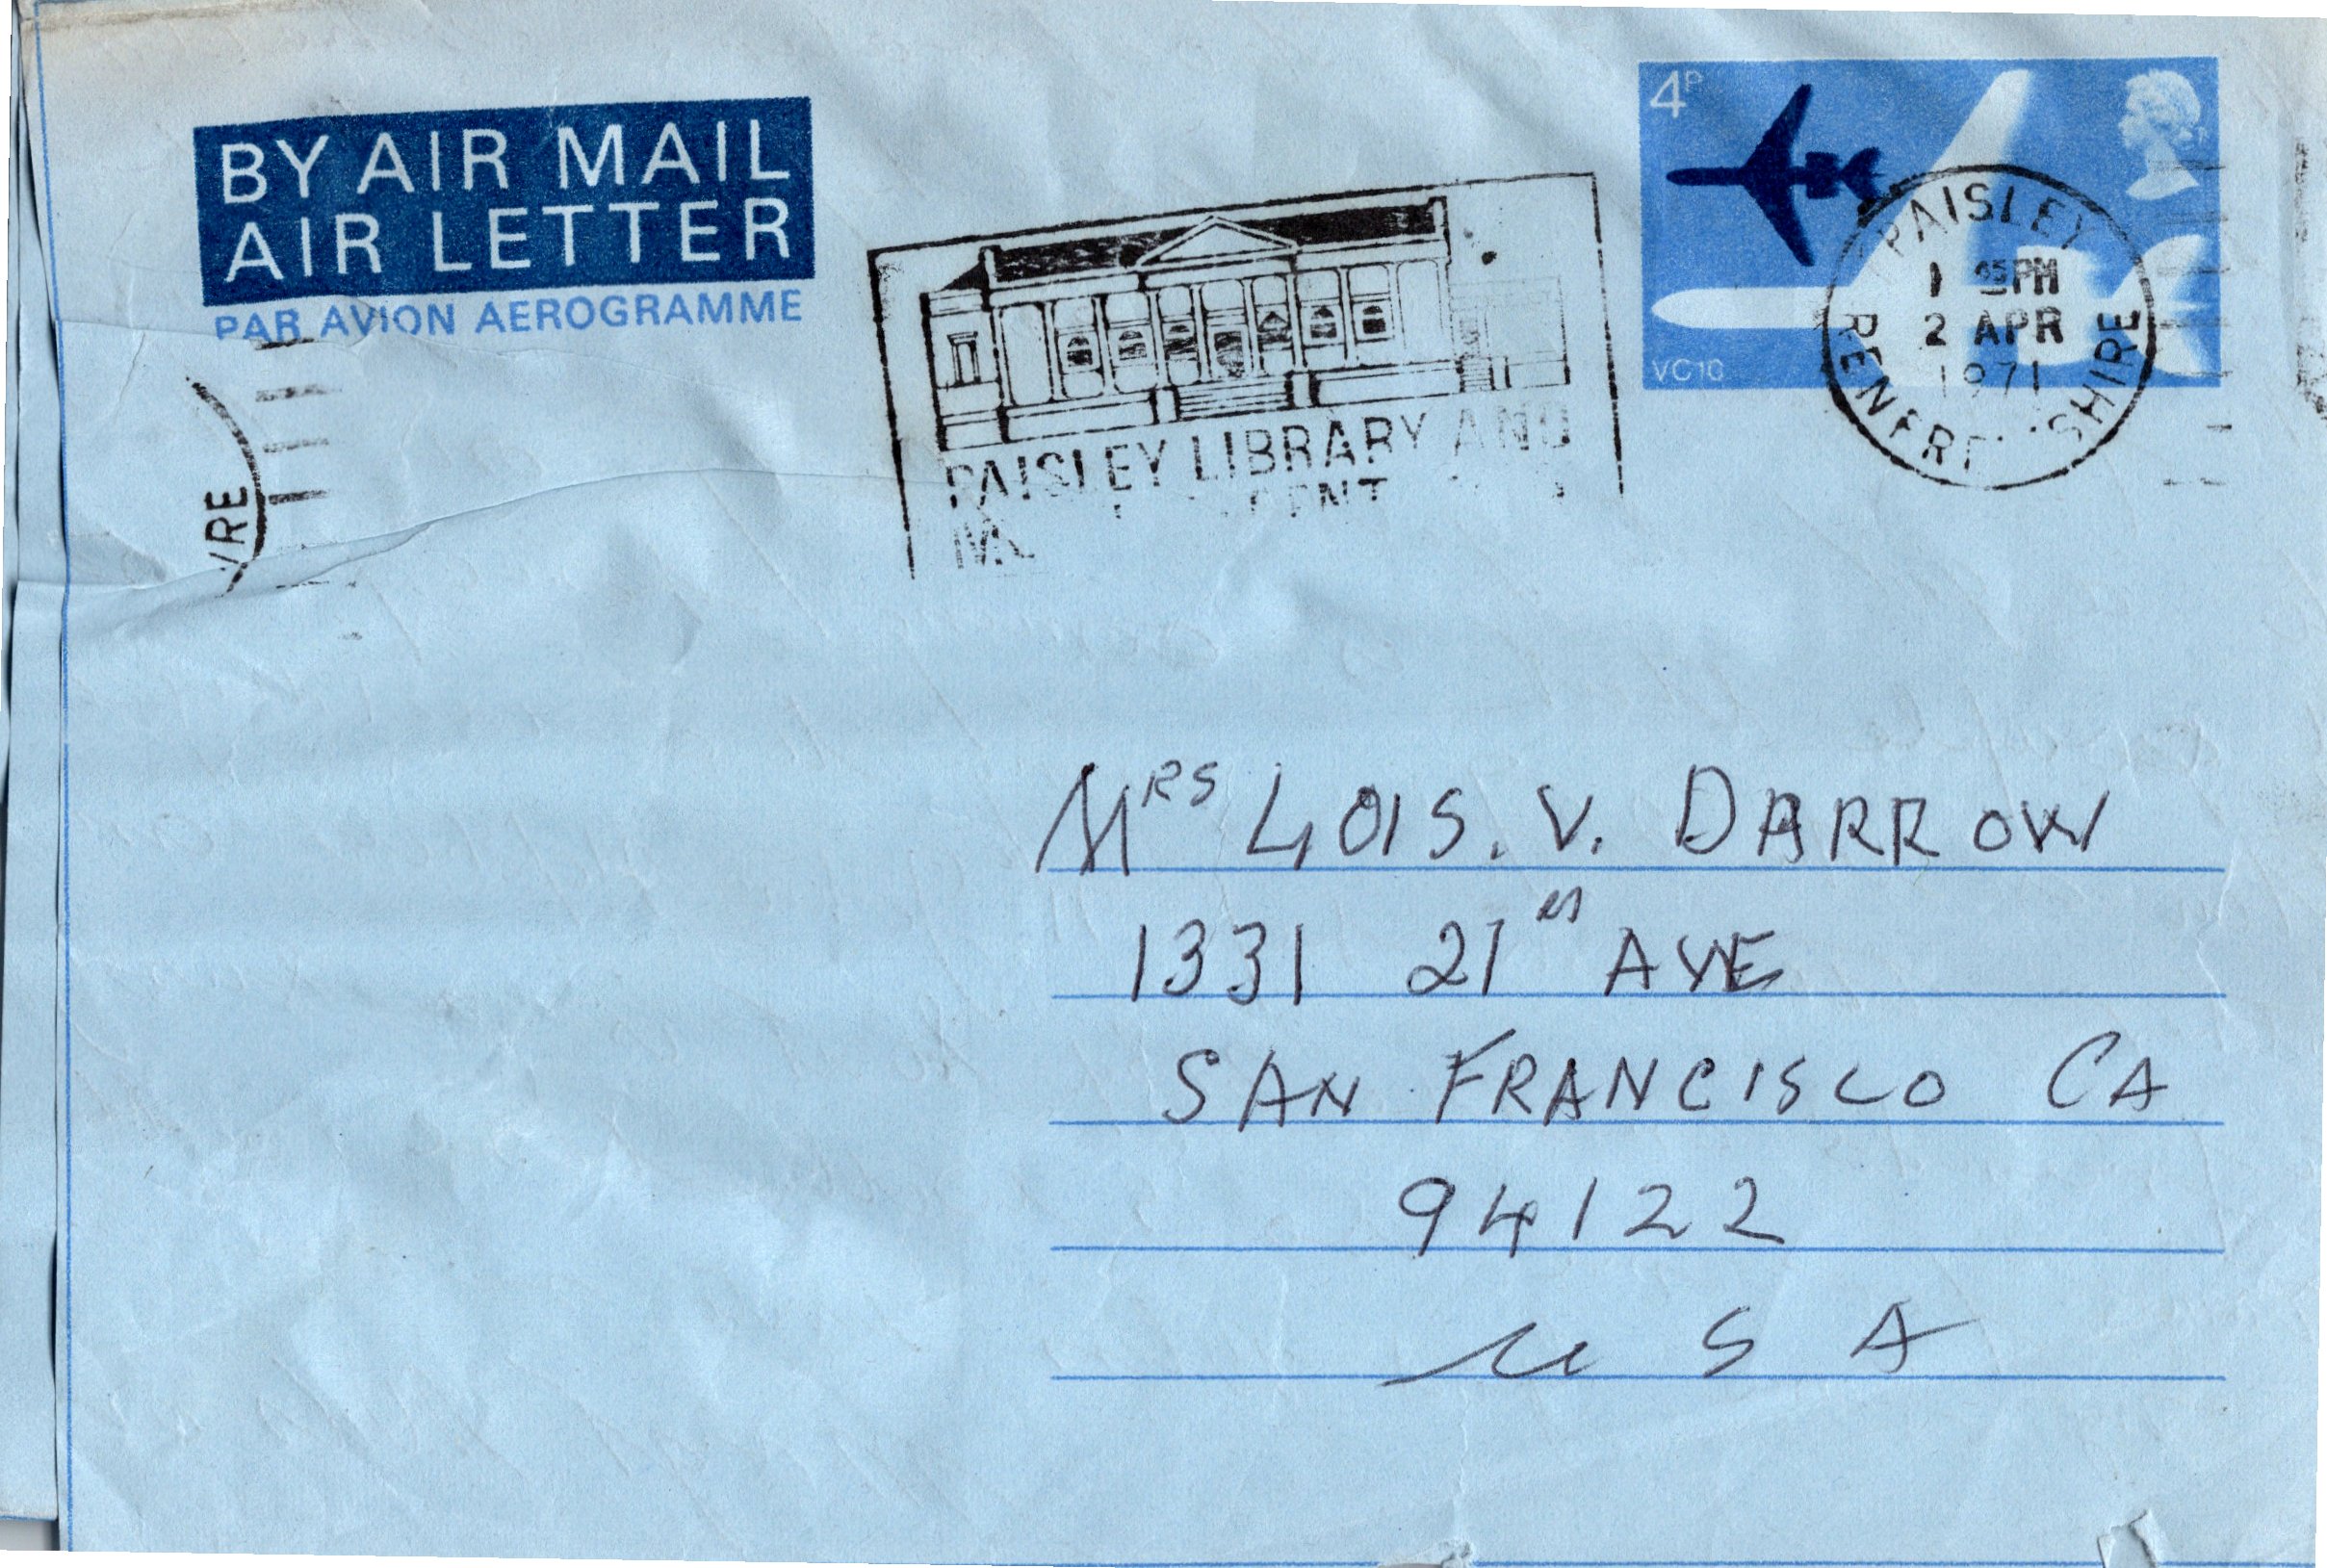 BY AIR MAIL
AIR LETTER
PAR AVION AEROGRAMME
4P
VC10
PAISLEY
1 45PM
2 APR
1971
RENFREWSHIRE
PAISLEY LIBRARY AND
MRS LOIS. V. DARROW
1331 21st AVE
SAN FRANCISCO CA
94122
U S A